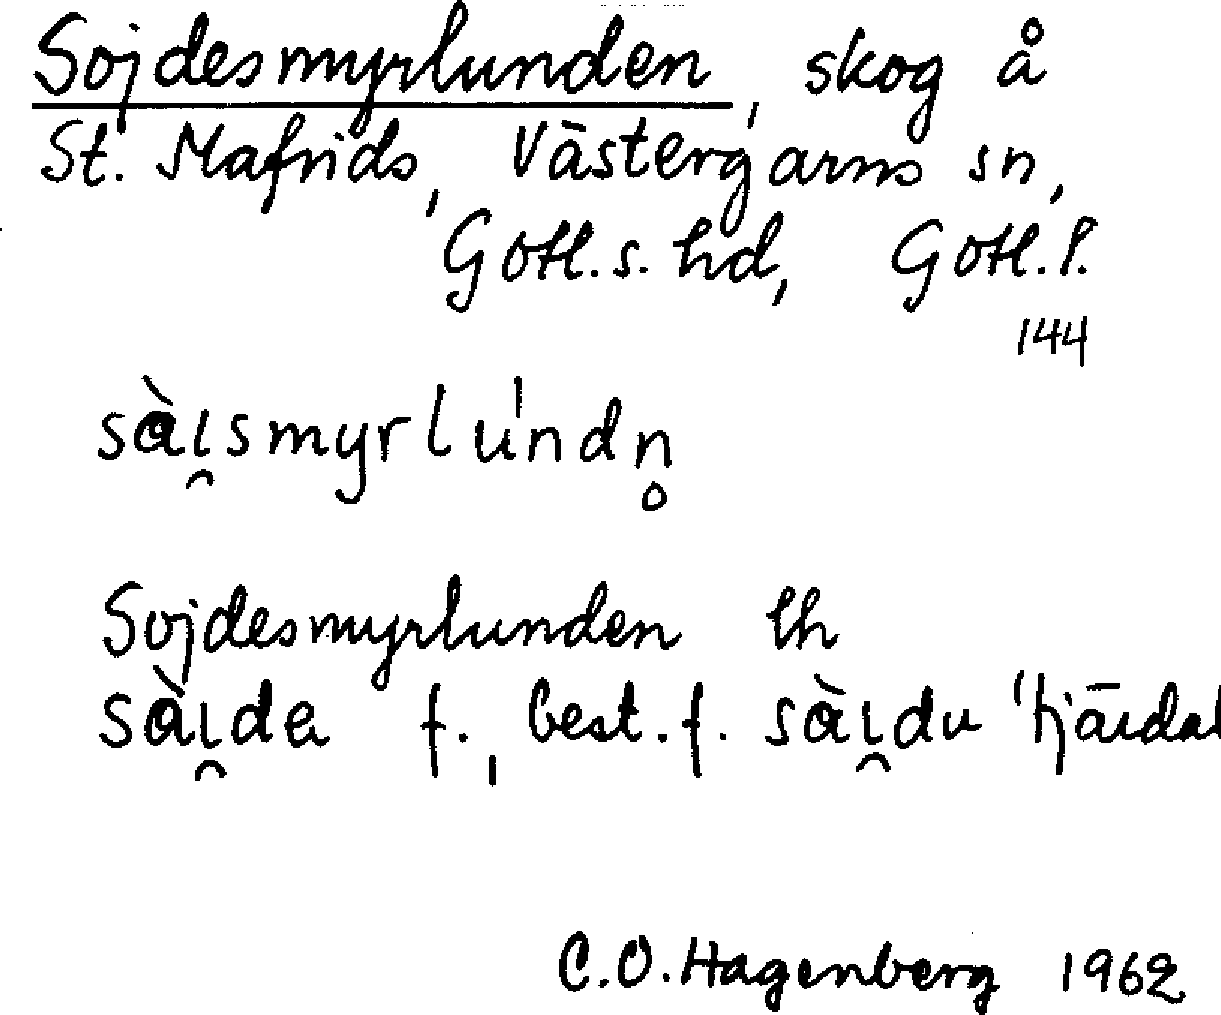 Sojdesmyrlunden, skog å
St. Mafrids, Västergarns sn,
Gotl. s. hd, Gotl. l.
144
sàı̯smyrlu̍ndn̥
Sojdesmyrlunden lh
sàı̯da f., best. f. sàı̯du 'tjärdal
C. O. Hagenberg 1962